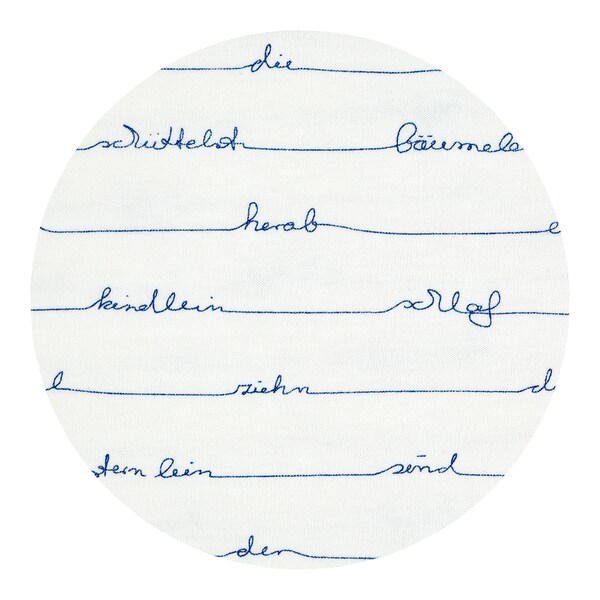 die
schüttelst bäumele
herab e
kindlein schlaf
l ziehn d
sternlein sind
den